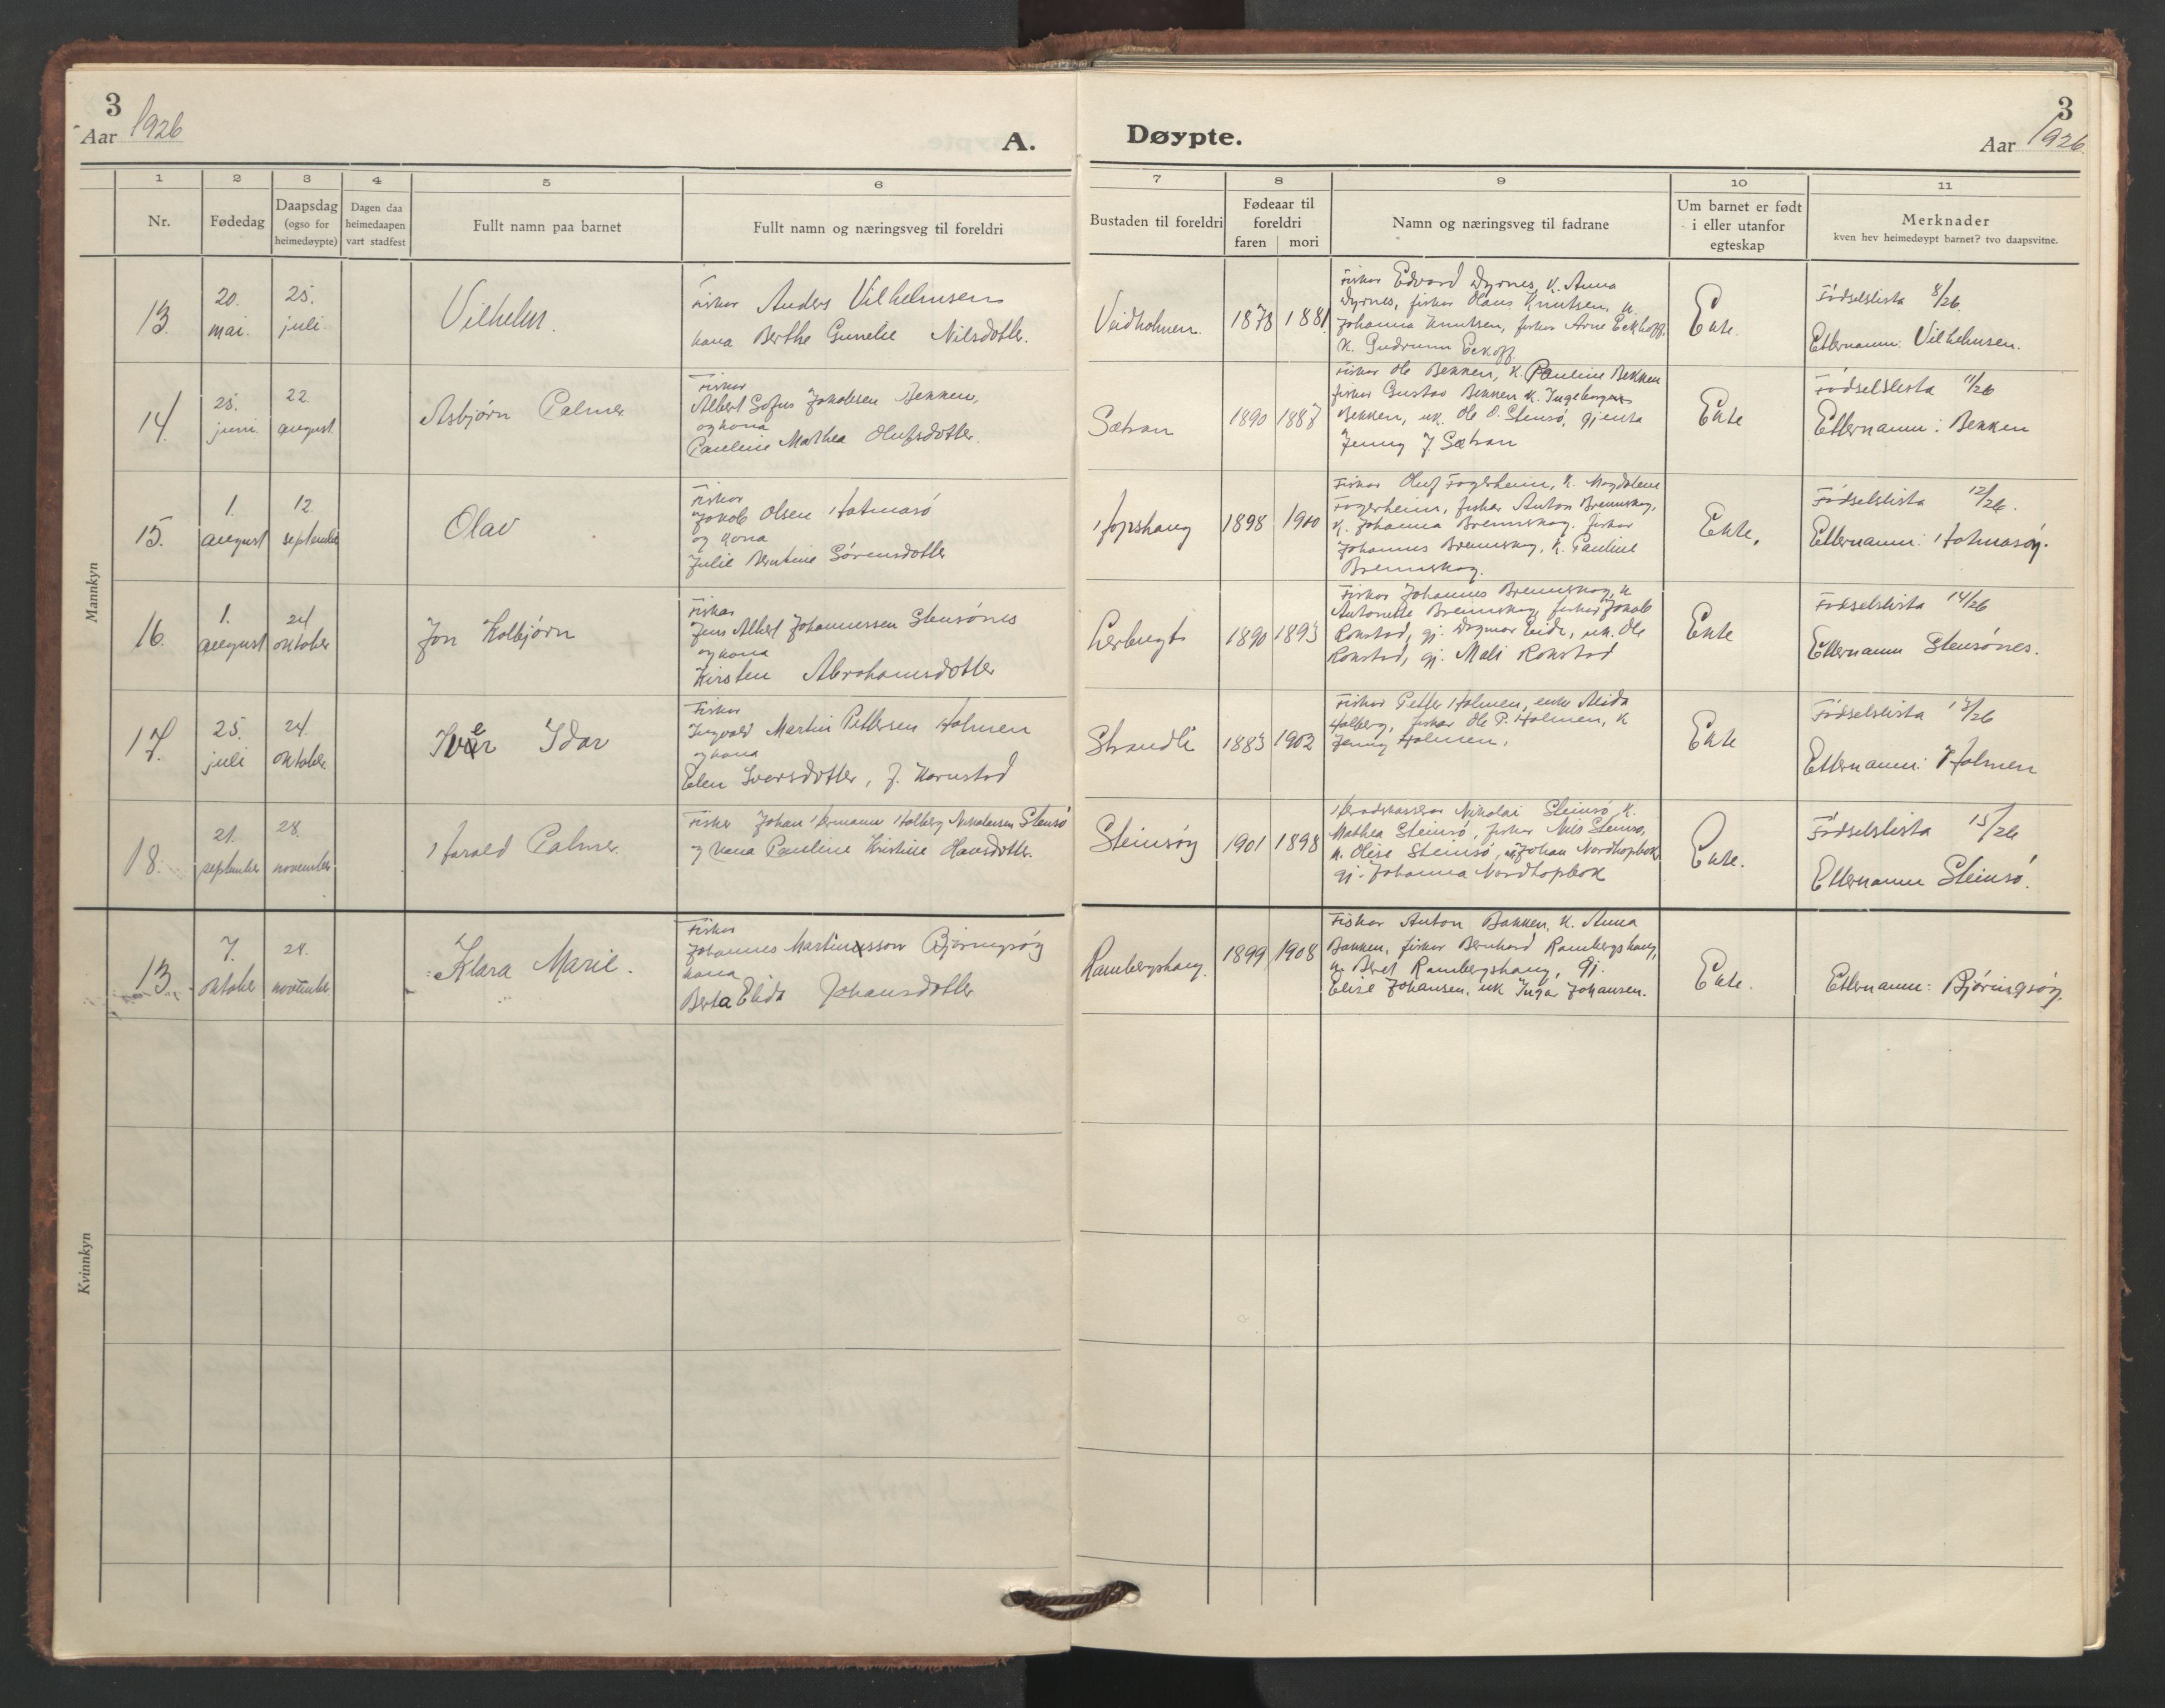 3
Aar 1926
A.
Døypte.
3
Aar 1926.
1 2 3 4 5 6 7 8 9 10 11
Nr.
Fødedag
Daapsdag
(ogso for
heimedøypte)
Dagen daa
heimedaapen
vart stadfest
Fullt namn paa barnet
Fullt namn og næringsveg til foreldri
Bustaden til foreldri
Fødeaar til
foreldri
faren mori
Namn og næringsveg til fadrane
Um barnet er født
i eller utanfor
egteskap
Merknader
kven hev heimedøypt barnet? tvo daapsvitne.
Mannkyn
13.
20.
mai.
25.
juli.
Vilhelm.
Fiskar Anders Vilhelmsen
kona Berthe Gunelie Nilsdotter.
Veidholmen.
1878 1881.
Fiskar Edvard Dyrnes, K. Anna
Dyrnes, fiskar Hans Knutsen, K.
Johanna Knutsen, fiskar Arne Eckhoff.
K. Gudrunn Eckoff.
Ekte.
Fødselslista 8/26.
Etternamn: Vilhelmsen.
14.
25.
juni.
22.
august
Asbjørn Palmer
Fiskar
Albert Sofus Jakobsen Bekken,
og kona
Pauline Mathea Olufsdotter.
Sætran
1890 1887
Fiskar Ole Bekken, K. Pauline Bekken
fiskar Gustav Bekken K. Ingeborg
Bekken, uk. Ole O. Stensø, gjenta
Jenny J. Sætran
Ekte
Fødselslista 11/26
Etternamn: Bekken
15.
1.
august
12.
september
Olav
Fiskar
Jakob Olsen Hatmasø
og kona
Julie Berntine Sørensdotter
Hopshaug
1898 1900
Fiskar Oluf Fagerheim, K. Magdalena
Fagerheim, fiskar Anton Bremskag,
K. Johanna Bremskag. fiskar
Johannes Bremskag, K. Pauline
Bremskag.
Ekte.
Fødselslista 12/26.
Etternamn: Hatmasøy.
16.
1.
august
24
oktober
Jon Kolbjørn
Fiskar
Jens Albert Johannessen Stensønes
og kona
Kirsten Abrahamsdotter
Leirbugt
1890 1893
Fiskar Johannes Bremskag, K
Antonette Bremskag, fiskar Jakob
Rokstad, gj. Dagmar Eide, uk. Ole
Rokstad, gj. Mali Rokstad
Ekte
Fødselslista 14/26
Etternamn Stensønes.
17.
25.
juli
24.
oktober.
Iver Idar
Fiskar
Ingvald Martin Pettersen Holmen
og kona
Elen Iversdotter, f. Kornstad
Strandli
1883 1902
Fiskar Petter Holmen, enke
Holberg, fiskar Ole P. Holmen, K
Jenny Holmen.
Ekte
Fødselslista 13/26
Etternamn: Holmen
18.
21.
september
28.
november
Harald Palmer.
Fisker Johan Hermann Holberg Nikolaisen Stensø
og kona Pauline Kristine Hansdotter.
Steinsøy
1901 1898
Heradskasserar Nikolai Steinsø, K.
Mathea Steinsø, fiskar Nils Steinsø,
K. Olise Steinsø, uk Johan Nordhopbak
gj. Johanna Nordhopbak
Ekte.
Fødselslista 15/26
Etternamn Steinsø.
Kvinnkyn
13.
7.
oktober
28.
november
Klara Marie.
Fiskar
Johannes Martinsson Bjøringsøy
kona
Berta Elida Johansdotter
Rambergshaug.
1899 1908
Fiskar Anton Bakken, K. Anna
Bakken, fiskar Bernhard Rambergshaug,
K. Beret Rambergshaug, Gj.
Elise Johansen, uk Ingar Johansen.
Ekte.
Etternamn: Bjøringsøy.